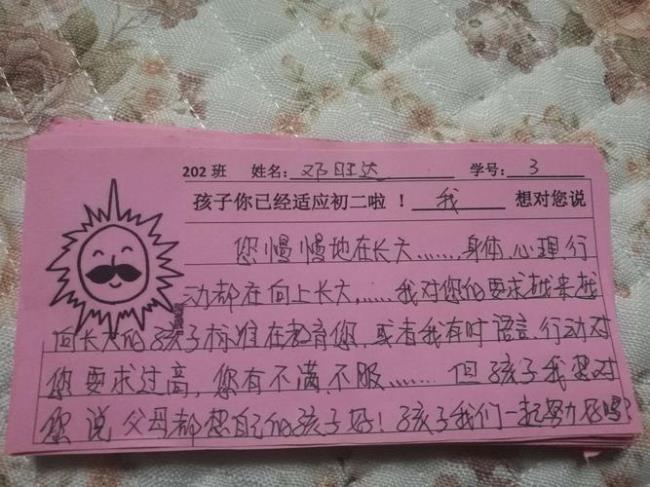 202 班 姓名: 邓旺达 学号: 3
孩子你已经适应初二啦 ! 我 想对您说
您慢慢地在长大........身体,心理,行
动都在向上长大,......我对您的要求越来越
向长大的孩子标准在教育您,或者我有时语言,行动对
您要求过高,您有不满,不服........但孩子我想对
您说父母都想自己的孩子好!孩子我们一起努力好吗?